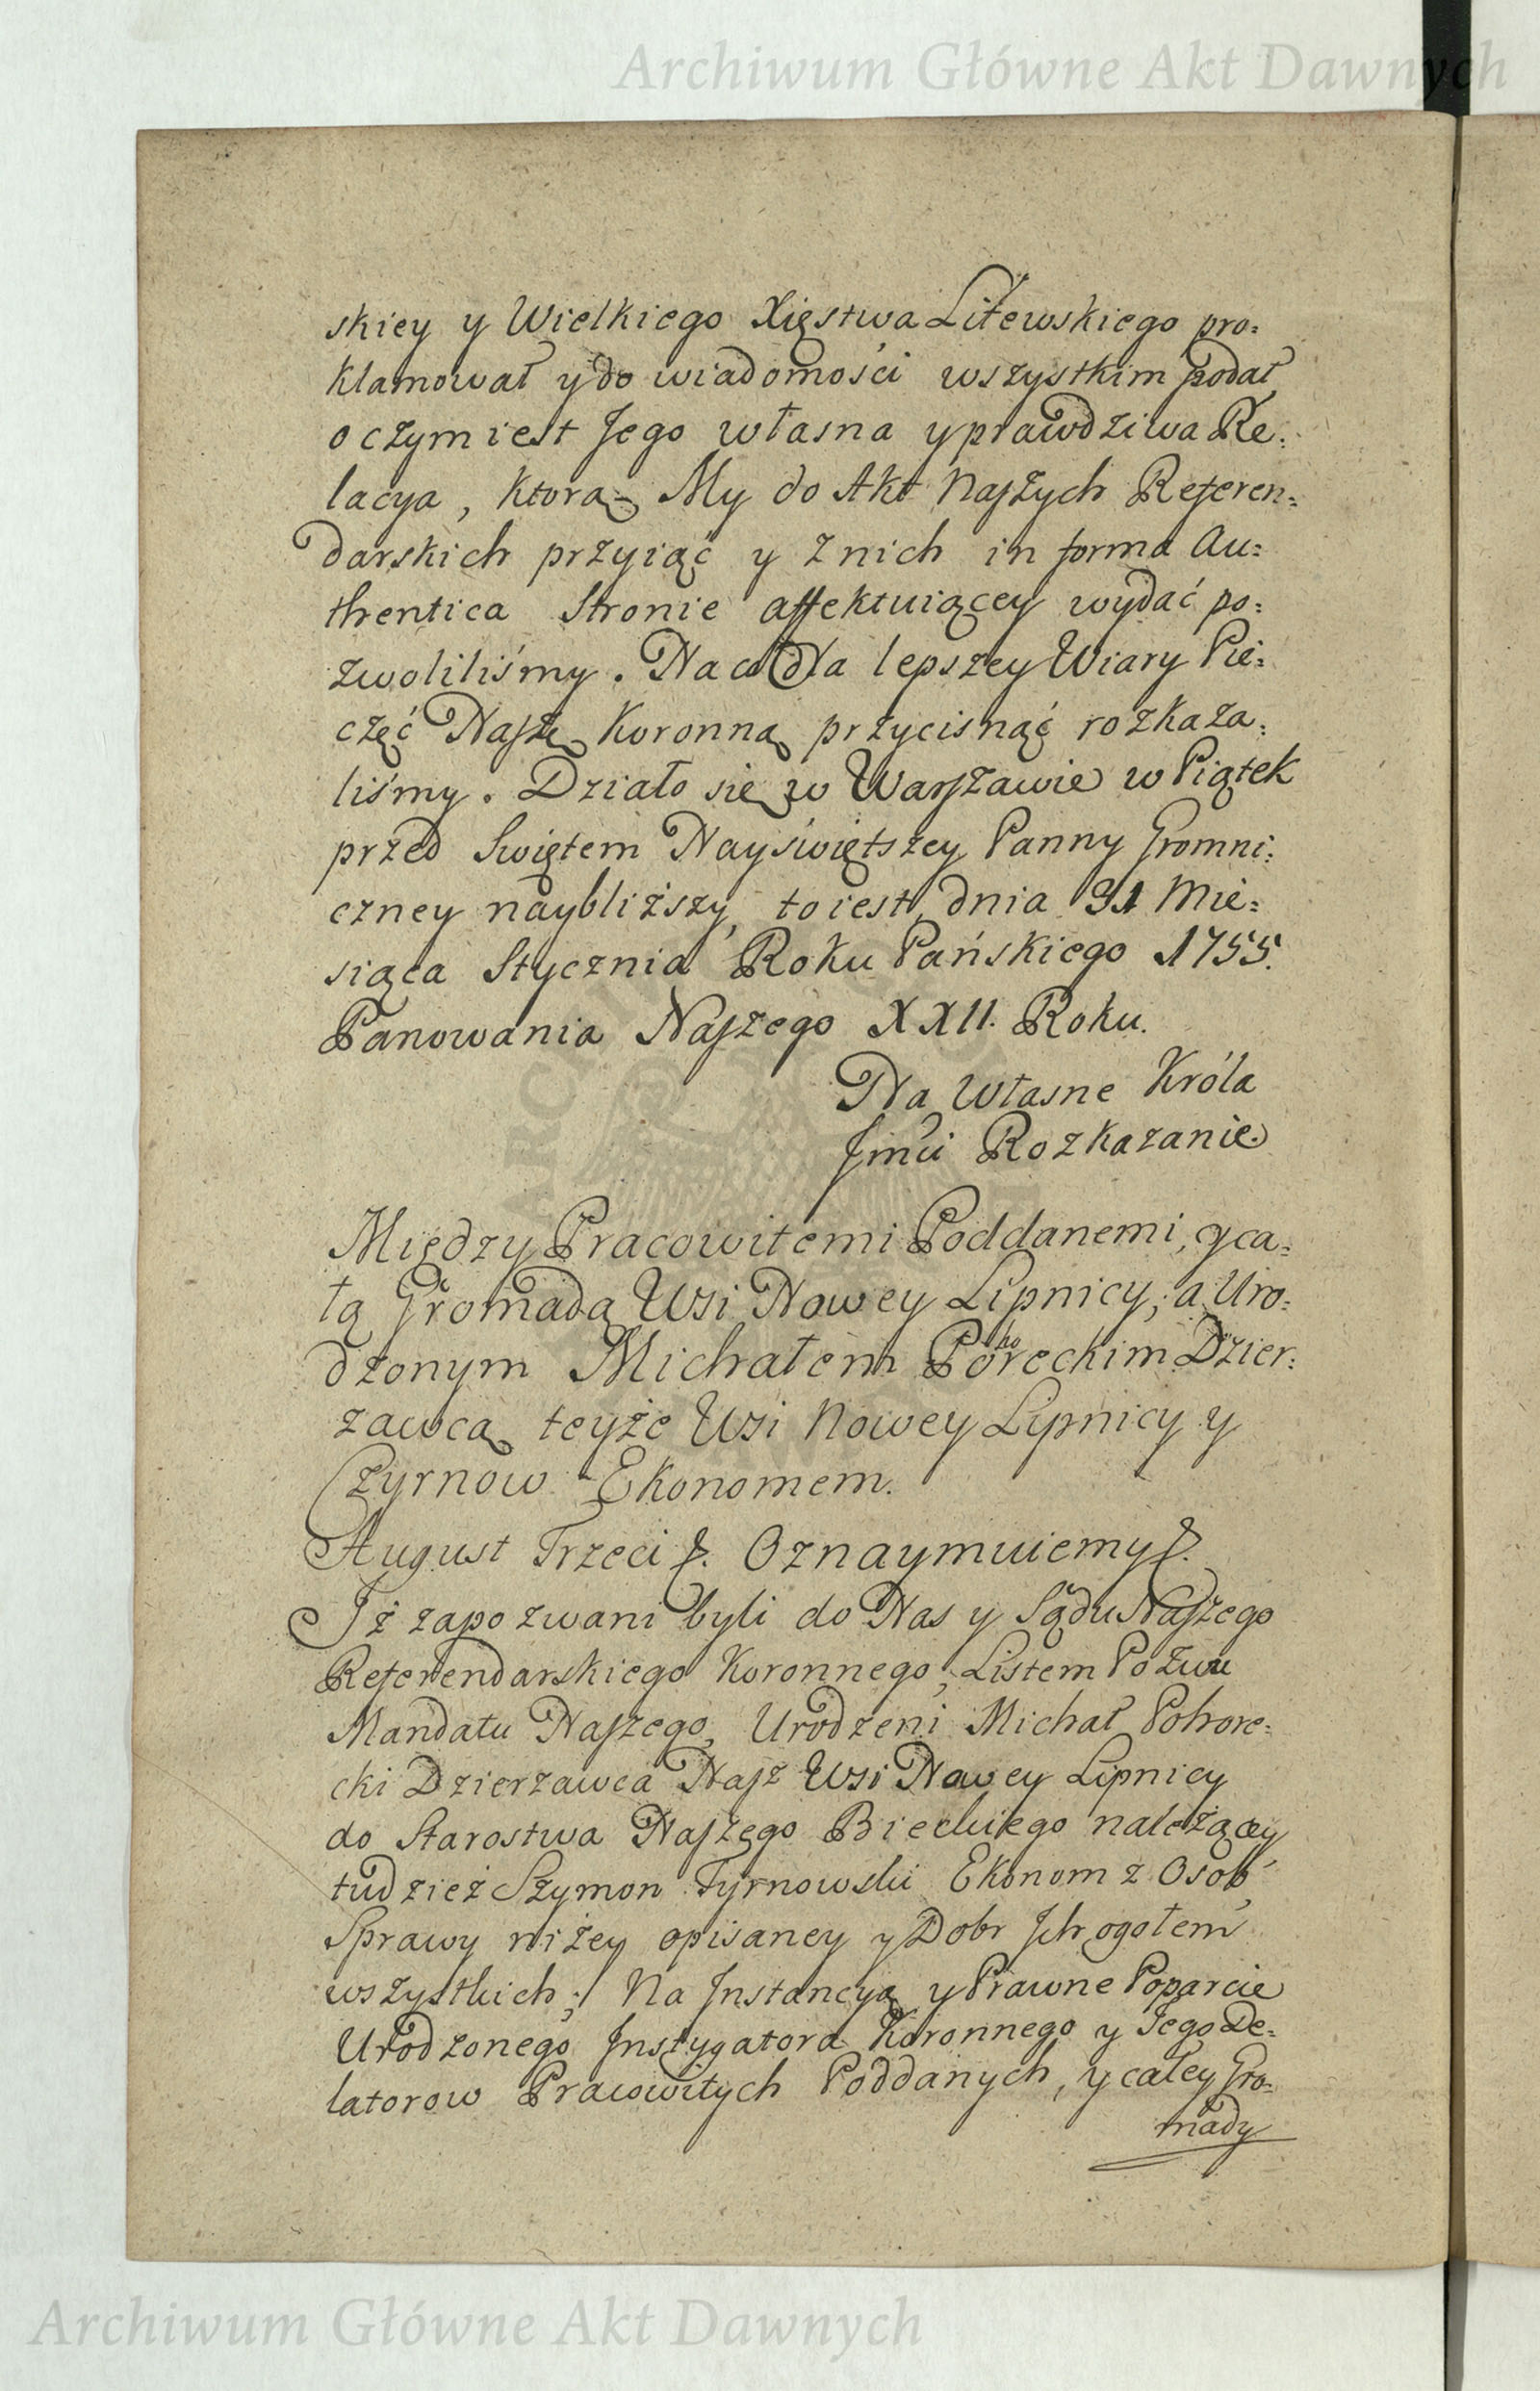 Archiwum Główne Akt Dawnych
skiey y Wielkiego Xięstwa Litewskiego pro=
klamował y do wiadomości wszystkim podał
o czym iest Jego własna y prawdziwa Re=
lacya, ktorą My do Akt Naszych Referen=
darskich przyiąć y z nich in forma Au=
thentica Stronie affektuiącey wydać po=
zwoliliśmy. Na co dla lepszey Wiary Pie=
częć Naszą Koronną przycisnąć rozkaza=
liśmy. Działo się w Warszawie w Piątek
przed Swiętem Nayświętszey Panny Gromni=
czney naybliższy, to iest dnia 31 Mie=
siąca Stycznia Roku Pańskiego 1755.
Panowania Naszego XXII. Roku.
Na Własne Króla
Jmći Rozkazanie.
Między Pracowitemi Poddanemi, y ca=
łą Gromadą Wsi Nowey Lipnicy, a Uro=
dzonym Michałem Pohoreckim Dzier=
zawcą teyże Wsi Nowey Lipnicy y
Czyrnow Ekonomem.
August Trzeci &. Oznaymuiemy &.
Iż zapozwani byli do Nas y Sądu Naszego
Referendarskiego Koronnego, Listem Pozwu
Mandatu Naszego, Urodzeni Michał Pohore=
cki Dzierzawca Nasz Wsi Nowey Lipnicy
do Starostwa Naszego Bieckiego należącey
tudzież Szymon Tyrnowski Ekonom z Osob
Sprawy niżey opisaney y Dobr Ich ogołem
wszystkich; Na Instancyą y Prawne Poparcie
Urodzonego Instygatora Koronnego y Jego De=
latorow Pracowitych Poddanych, y całey Gro=
mady
Archiwum Główne Akt Dawnych